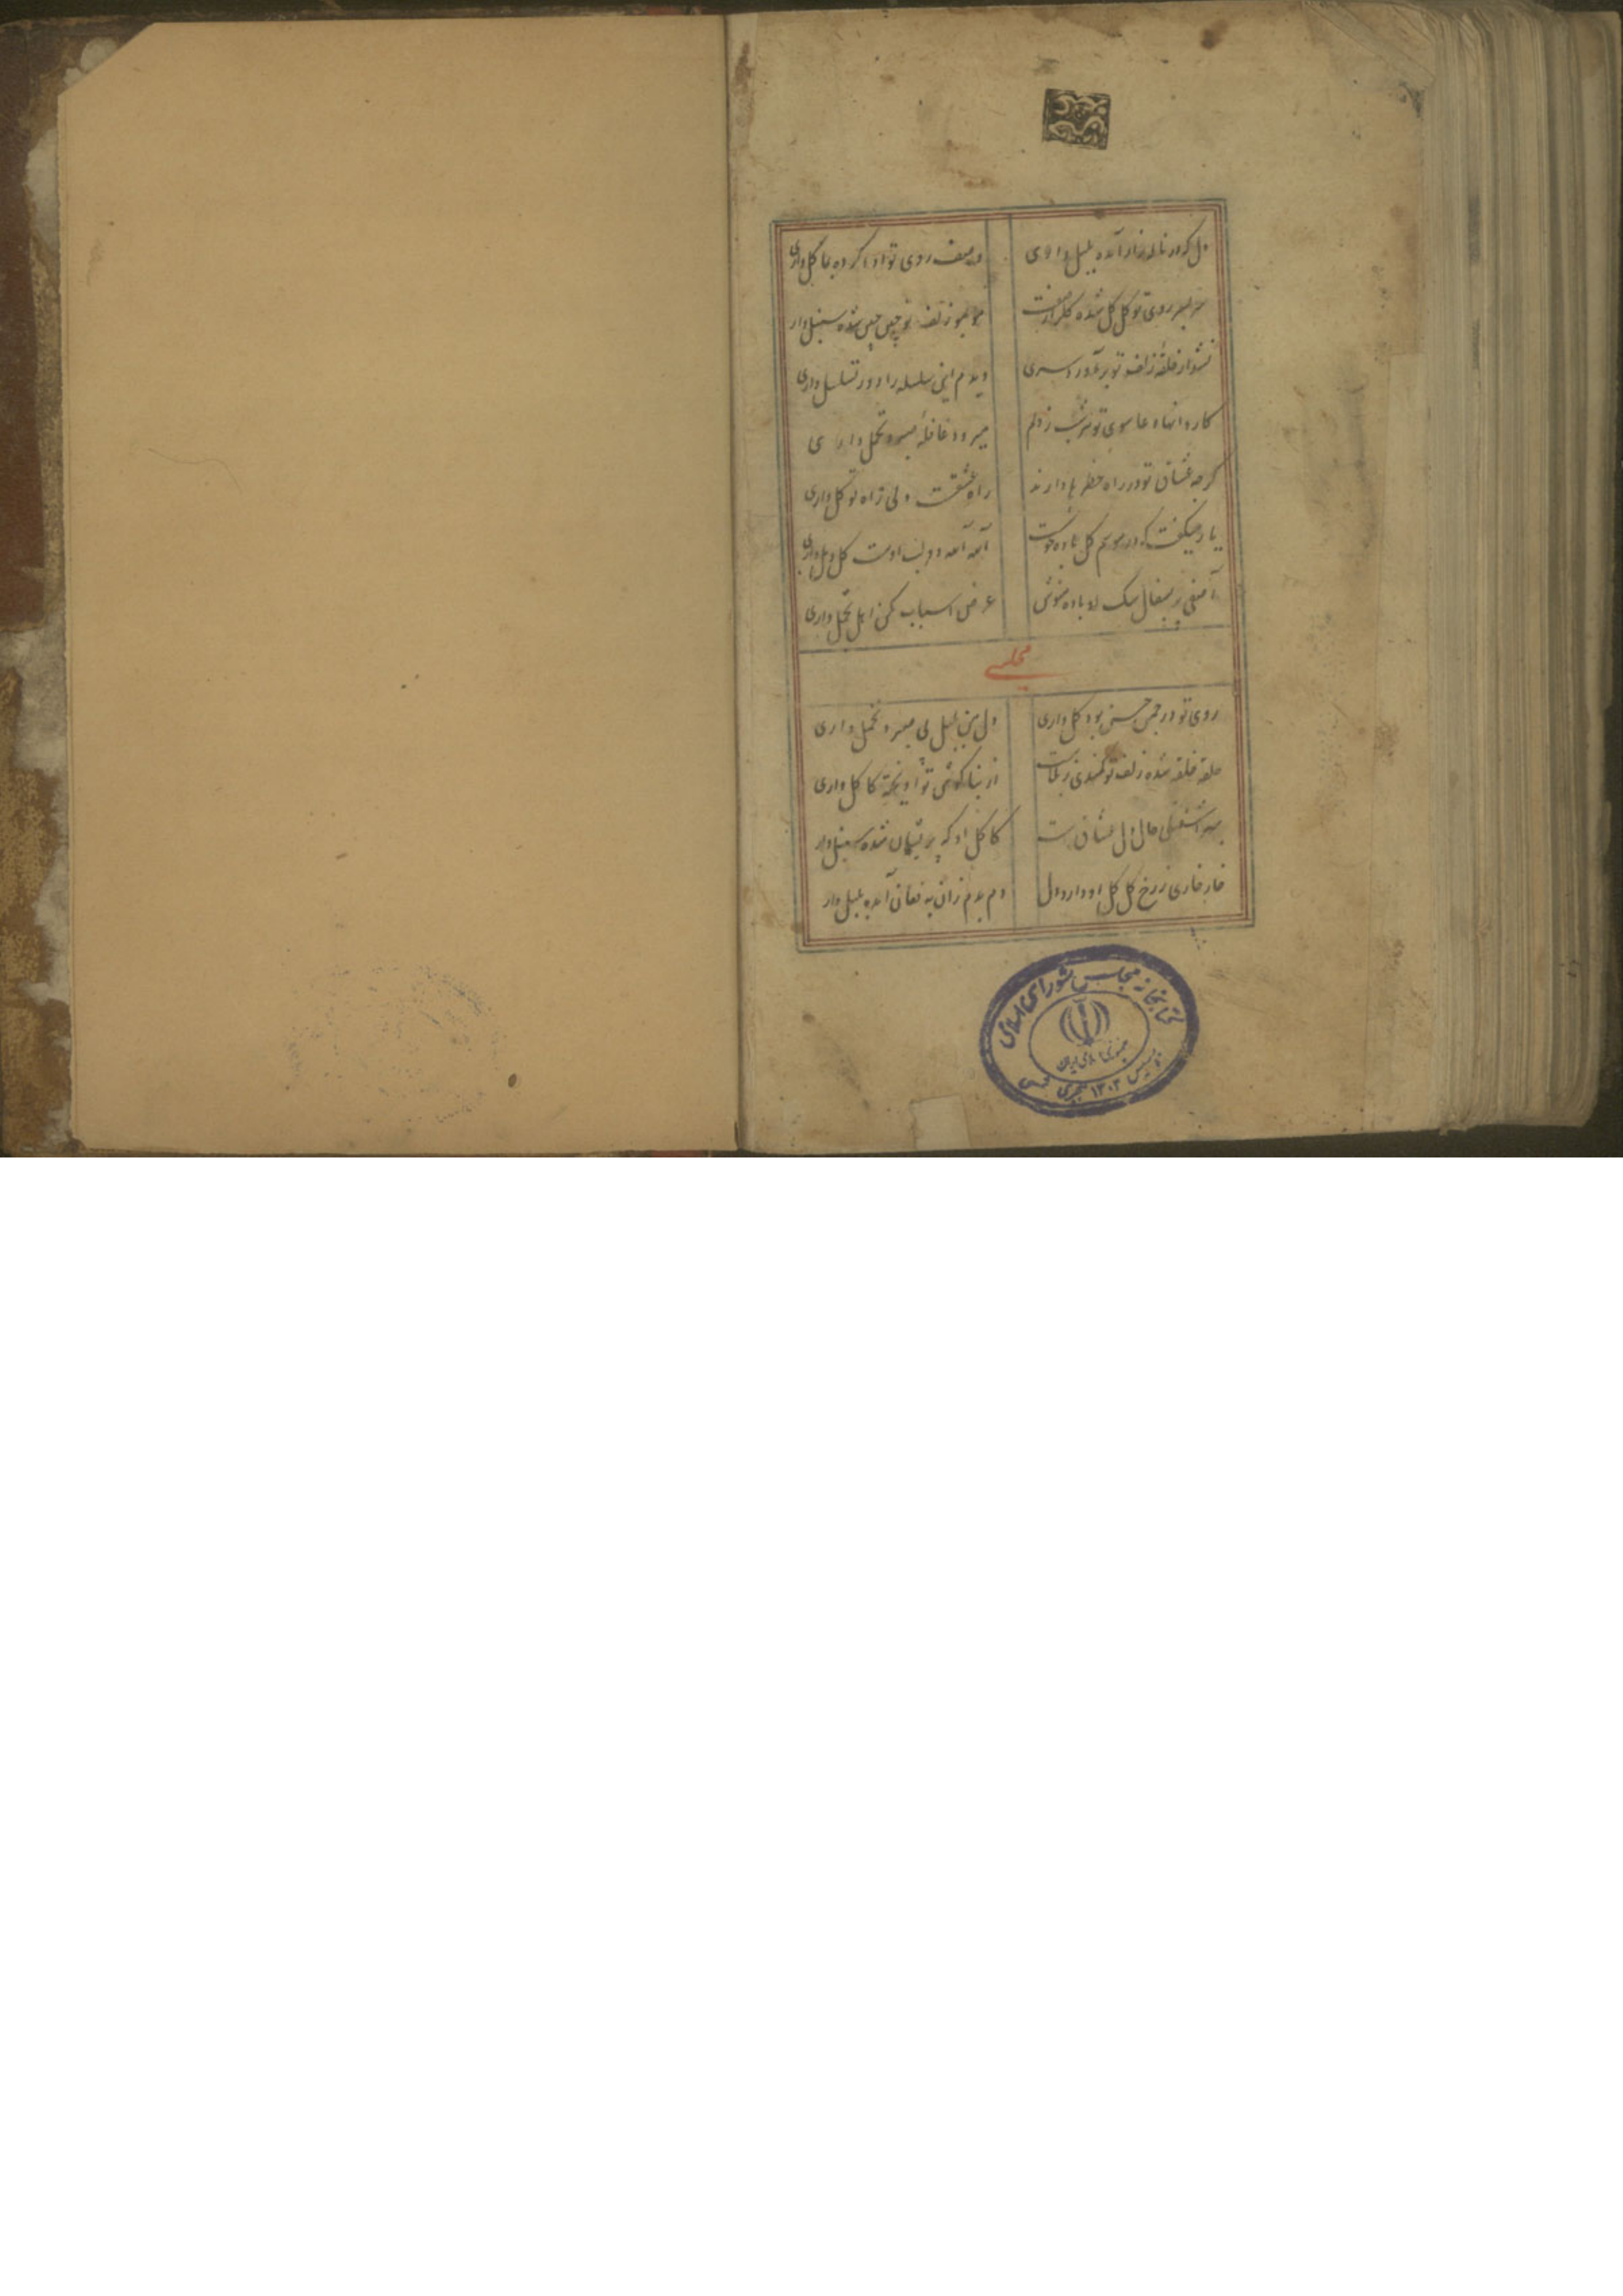 دل که در ناله زار آمده بلبل واری
وصف روی تو ادا کرده بما گل واری
سر بسر روی تو گل گل شده گلزار صفت
مو بمو زلف تو چین چین شده سنبل وار
نشد از حلقه زلف تو برآورد سری
دیدم این سلسله را دور تسلسل واری
کاروانهاء دعا سوی تو هر شب ز دلم
میرود قافله صبر و تحمل داری
گرچه عشاق تو در راه خطرها دارند
راه عشقست ولی زاه توکل واری
یار میگفت که در موسم گل باده خوشست
آمد آمد گل و مل واری
آصفی سفال سگ او باده بنوش
عرض اسباب مکن اهل تجمل واری
مجلسی
روی تو در چمن حسن بود گل واری
دل من بلبل بی صبر و تحمل واری
حلقه حلقه شده زلف تو کمندی ز بلاست
از بناگوش تو آویخته کاکل واری
آشفتگی حال دل عشاق است
کاکل او که پریشان شده سنبل وار
خار خاری ز رخ گل گل او دارد دل
دم بدم زان به فغان آمده بلبل وار
کتابخانه مجلس شورای اسلامی
جمهوری اسلامی ایران
تاسیس ۱۳۰۲ هجری شمسی